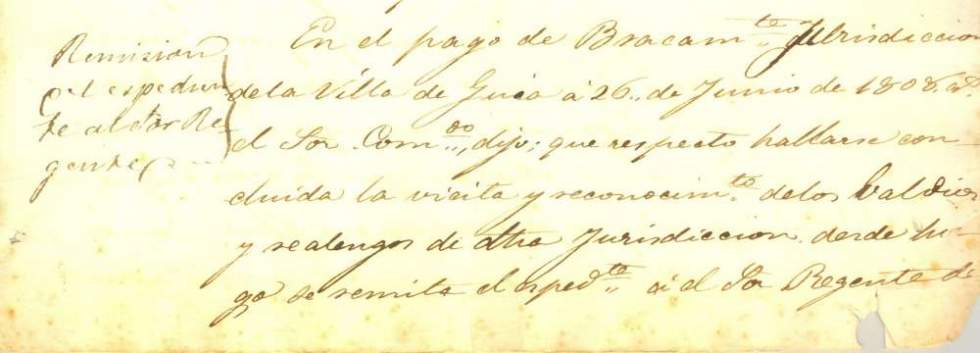 Remision
del espedien
te al Sor Re
gente
En el pago de Bracam.te Jurisdiccion
de la Villa de Guia á 26,, de Junio de 1808 a.s
el Sor. Com.do,, dijo; que respecto hallarse con-
cluida la vicita y reconocim.to delos baldios
y realengos de dha Jurisdiccion desde lue-
go se remita el exped.te,, á el Sor Regente de